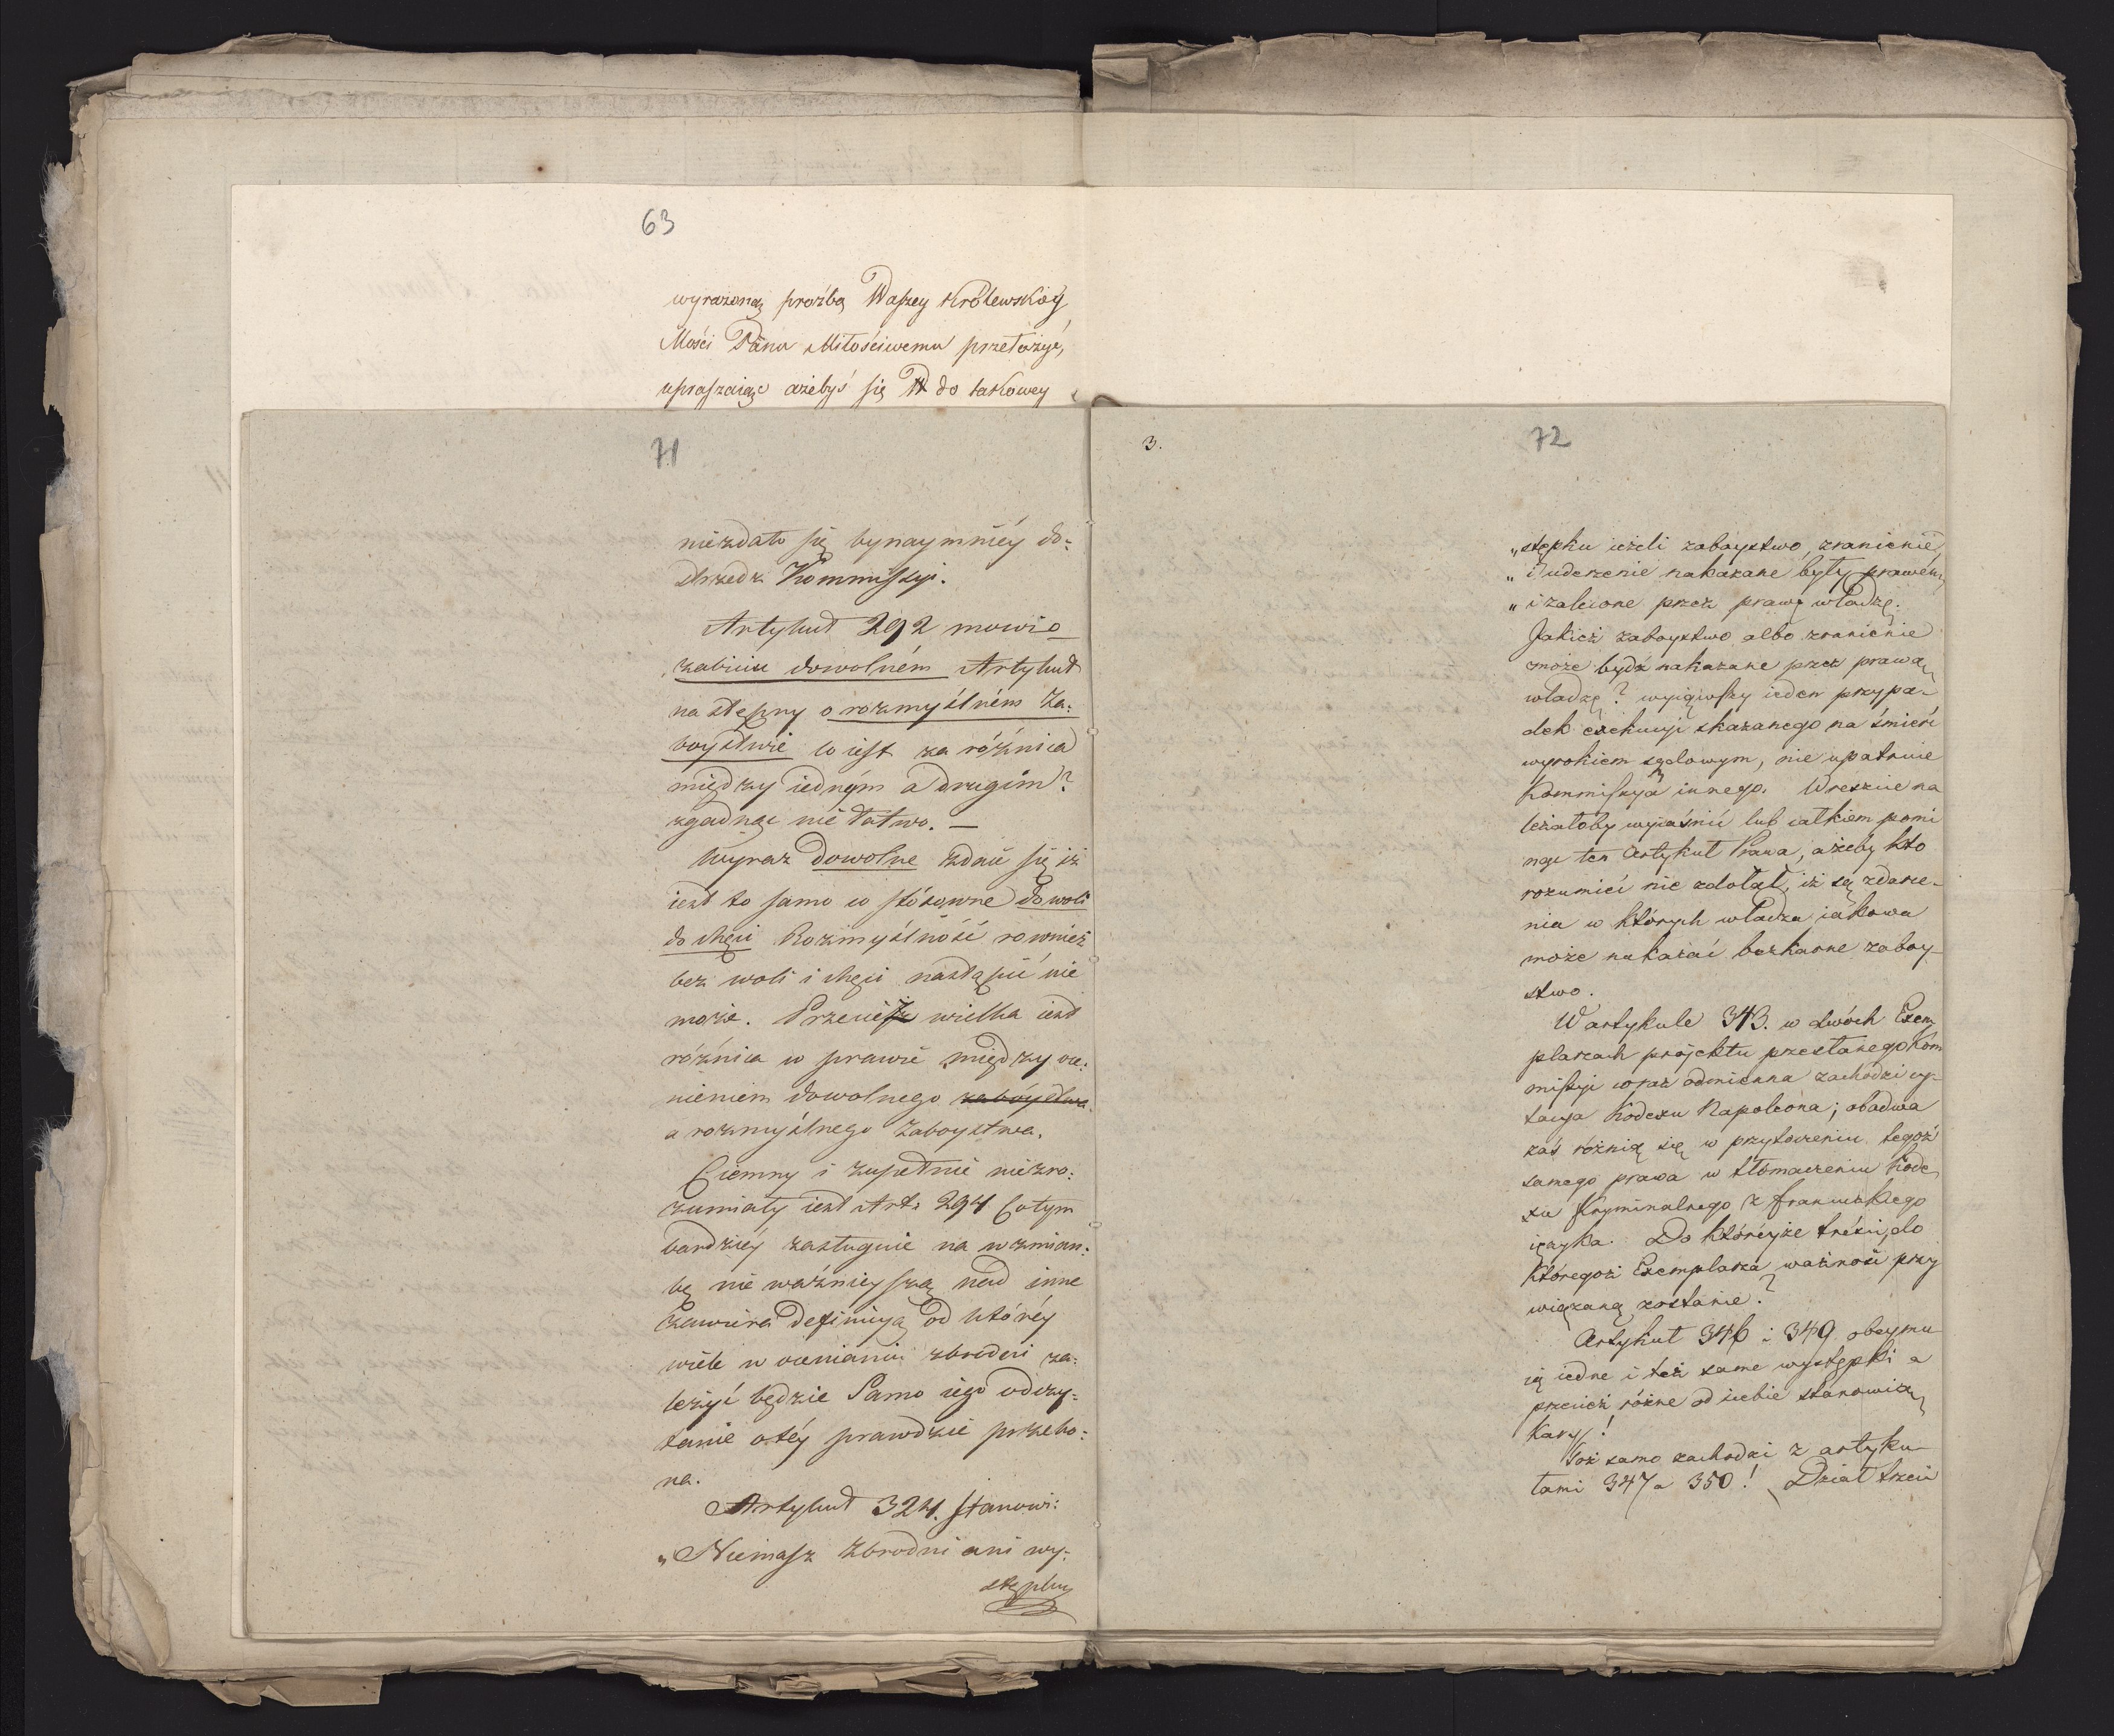 63
wyrażoną proźbą Waszey Królewskiey
Mości Panu Miłościwemu przełożyć,
upraszaiąc ażebyś się do takowey
71
niezdało się bynaymniéy do-
strzedz Kommissyi.
Artykuł 292 mowi o
zabiciu dowolném Artykuł
następny o rozmyślném Za-
boystwie co iest za różnica
między iedném a drugim?
zgadnąć nie łatwo. —
Wyraz Dowolne zdaie się iż
iest to samo co stósowne do woli
do chęci Rozmyślność rownież
bez woli i chęci nastąpić nie
może. Przecież wielka iest
różnica w prawie między oce-
nieniem dowolnego zabóystwa
a rozmyślnego Zaboystwa.
Ciemny i zupełnie niezro-
zumiały iest Art: 294 Co tym
bardziéy zasługuie na wzmian-
kę nie ważnieyszą nad inne
zawiera Definicyą od któréy
wiele w ocenianiu zbrodni za-
leżyć będzie Samo iego odczy-
tanie o téy prawdzie przeko-
na.
Artykuł 324. stanowi:
„Niemasz Zbrodni ani wy-
stępku
3.
72
„stępku ieżeli zaboystwo, zranienie,
„i uderzenie nakazane były prawém,
„i zalecone przez prawą władzę.
Jakież zaboystwo albo zranienie
może bydź nakazane przez prawą
władzę? wyiąwszy ieden przypa-
dek exekucyi skazanego na śmierć
wyrokiem sądowym, nie upatruie
Kommissya innego. Wreszcie na
leżałoby wyiaśnić lub całkiem pomi
nąć ten Artykuł Prawa, ażeby kto
rozumieć nie zdołał, iż są zdarze-
nia w których władza iakowa
może nakazać bezkarne zaboy-
stwo.
W artykule 343. w dwóch Exem
plarzach projektu przesłanego Kom
missyi coraz odmienna zachodzi cy-
tacya Kodexu Napoleona; obadwa
zaś różnią się w przytoczeniu tegoż
samego prawa w tłomaczeniu Kode
xu Kryminalnego z francuzkiego
ięzyka. Do któréyże treści, do
któregoż Exemplarza ważność przy
wiązaną zostanie?
Artykuł 346 i 349 obeymu
ią iedne i też same występki a
przecież różne od siebie stanowią
Kary!
Toż samo zachodzi z artyku-
łami 347 a 350! Dział trzeci